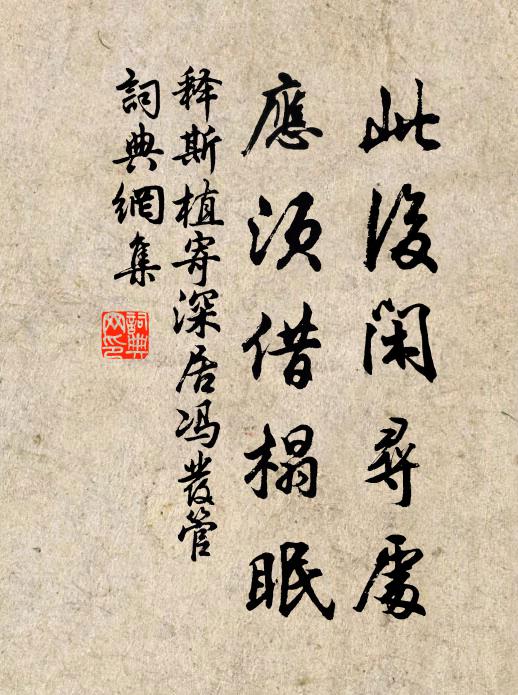 此後閑尋處
應須借榻眠
释斯植寄深居冯發管
詞典網集
詞典網印